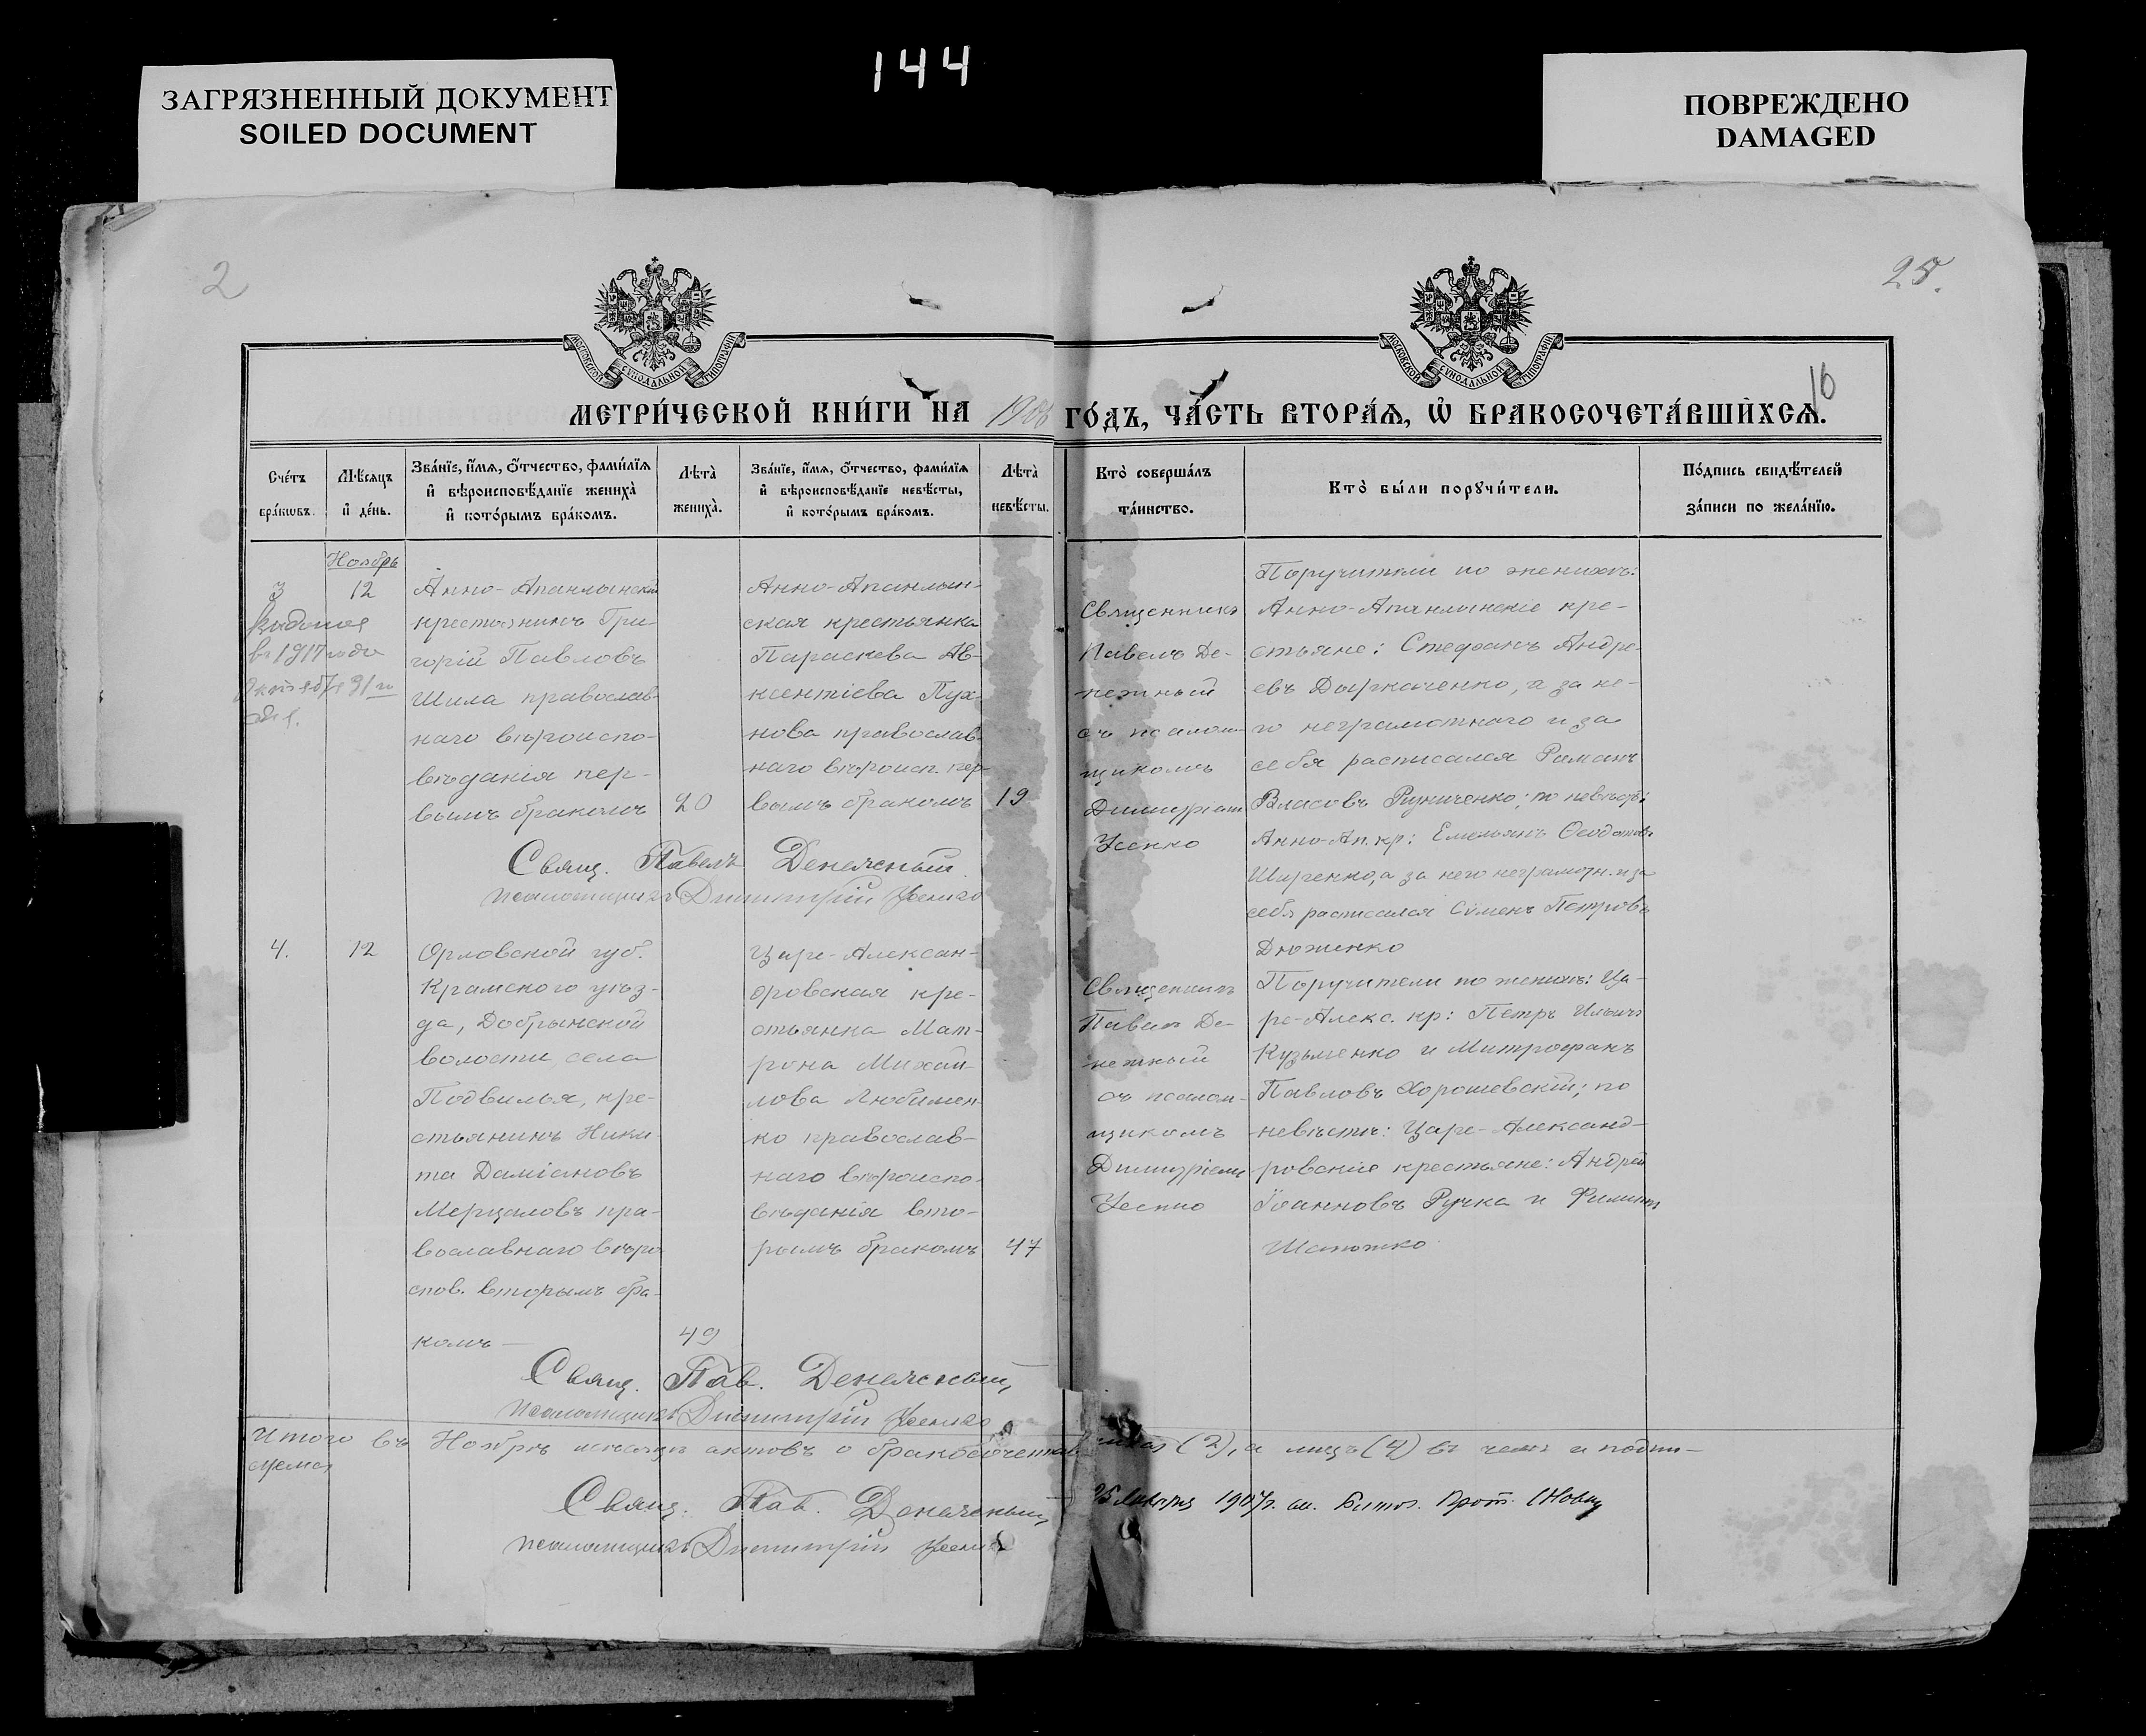 144
ЗАГРЯЗНЕННЫЙ ДОКУМЕНТ
SOILED DOCUMENT
ПОВРЕЖДЕНО
DAMAGED
2
25.
16
МОСКОВСКОЙ СУНОДАЛЬНОЙ ТИПОГРАФІИ
МОСКОВСКОЙ СУНОДАЛЬНОЙ ТИПОГРАФІИ
МЕТРИ́ЧЕСКОЙ КНИ́ГИ НА 1906 ГО́ДЪ, ЧА́СТЬ ВТОРА́Я, Ѡ҆ БРАКОСОЧЕТА́ВШИХСѦ.
Сче́тъ бра́кѡвъ.
Мѣ́сяцъ и҆ де́нь.
Зва́нїе, и҆́мѧ, ѻ҆́тчество, фами́лїѧ
и҆ вѣроисповѣ́данїе жениха̀
и҆ кото́рымъ бра́комъ.
Лѣта̀ жениха̀.
Зва́нїе, и҆́мѧ, ѻ҆́тчество, фами́лїѧ
и҆ вѣроисповѣ́данїе невѣ́сты,
и҆ кото́рымъ бра́комъ.
Лѣта̀ невѣ́сты.
Кто̀ соверша́лъ та́инство.
Кто̀ бы́ли порꙋчи́тели.
По́дпись свидѣ́телей за́писи по жела́нїю.
Ноябрь
3
12
в 1917 году
Анно-Апанлинскій
крестьянинъ Гри-
горій Павловъ
Шила православ-
наго вѣроиспо-
вѣданія пер-
вымъ бракомъ
20
Анно-Апанлин-
ская крестьянка
Параскева Ав-
ксентіева Пух-
нова православ-
наго вѣроисп. пер-
вымъ бракомъ
19
Священникъ
Павелъ Де-
нежный
съ псалом-
щикомъ
Димитріем
Усенко
Поручители по женихѣ:
Анно-Апанлинскіе кре-
стьяне: Стефанъ Андре-
евъ Дыркаченко, а за не-
го неграмотнаго и за
себя расписался Романъ
Власовъ Рудниченко; по невѣстѣ:
Анно-Ап. кр: Емельянъ Ѳеодотовъ
Ширенко, а за него неграмотн. и за
себя расписался Семенъ Петровъ
Дюженко
Свящ. Павелъ Денежный.
псаломщикъ Димитрій Усенко
4.
12
Орловской губ.
Крамского уѣз-
да, Добрынской
волости села
Подвилья, кре-
стьянинъ Ники-
та Даміановъ
Мерцаловъ пра-
вославнаго вѣро
спов. вторымъ бра-
комъ —
49
Царе-Алексан-
дровская кре-
стьянка Мат-
рона Михай-
лова Любимен-
ко православ-
наго вѣроиспо-
вѣданія вто-
рымъ бракомъ
47
Священникъ
Павелъ Де-
нежный
съ псалом-
щикомъ
Димитріемъ
Усенко
Поручители по женихѣ: Ца-
ре-Алекс. кр: Петръ Ильинъ
Кузьменко и Митрофанъ
Павловъ Хорошевскій; по
невѣстѣ: Царе-Александ-
ровскіе крестьяне: Андрей
Іоанновъ Ручка и Филиппъ
Шапошко
Свящ. Пав. Денежный,
псаломщикъ Димитрій Усенко
Итого въ Ноябрѣ мѣсяцѣ актовъ о бракосочетав (2), а лицъ (4) въ чемъ и подпи-
суемся
Свящ. Пав. Денежный,
псаломщикъ Димитрій Усенко
1907г.
Прот.